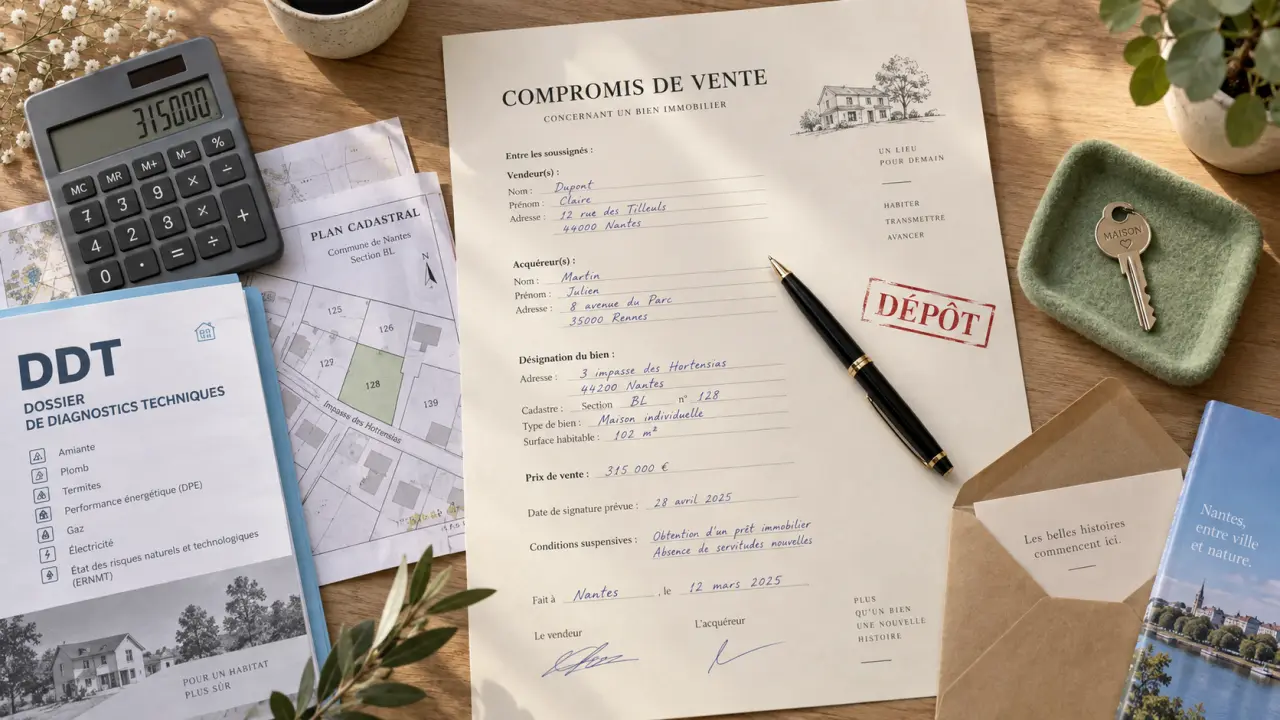 315000
MC MR M+ M- %
7 3 9 × ÷
4 2 3 × +
0 · = ÷
PLAN CADASTRAL
Commune de Nantes
Section BL
N
125
126
127
128
139
Impasse des Hortensias
DDT
DOSSIER
DE DIAGNOSTICS TECHNIQUES
Amiante
Plomb
Termites
Performance énergétique (DPE)
Gaz
Électricité
État des risques naturels et technologiques
(ERNMT)
POUR UN HABITAT
PLUS SÛR
COMPROMIS DE VENTE
CONCERNANT UN BIEN IMMOBILIER
Entre les soussignés :
Vendeur(s) :
Nom : Dupont
Prénom : Claire
Adresse : 12 rue des Tilleuls
44000 Nantes
Acquéreur(s) :
Nom : Martin
Prénom : Julien
Adresse : 8 avenue du Parc
35000 Rennes
Désignation du bien :
Adresse : 3 impasse des Hortensias
44200 Nantes
Cadastre : Section BL n° 128
Type de bien : Maison individuelle
Surface habitable : 102 m²
Prix de vente : 315 000 €
Date de signature prévue : 28 avril 2025
Conditions suspensives : Obtention d'un prêt immobilier
Absence de servitudes nouvelles
Fait à Nantes , le 12 mars 2025
Le vendeur
L'acquéreur
UN LIEU
POUR DEMAIN
HABITER
TRANSMETTRE
AVANCER
DÉPÔT
PLUS
QU'UN BIEN
UNE NOUVELLE
HISTOIRE
MAISON
Les belles histoires
commencent ici.
Nantes,
entre ville
et nature.